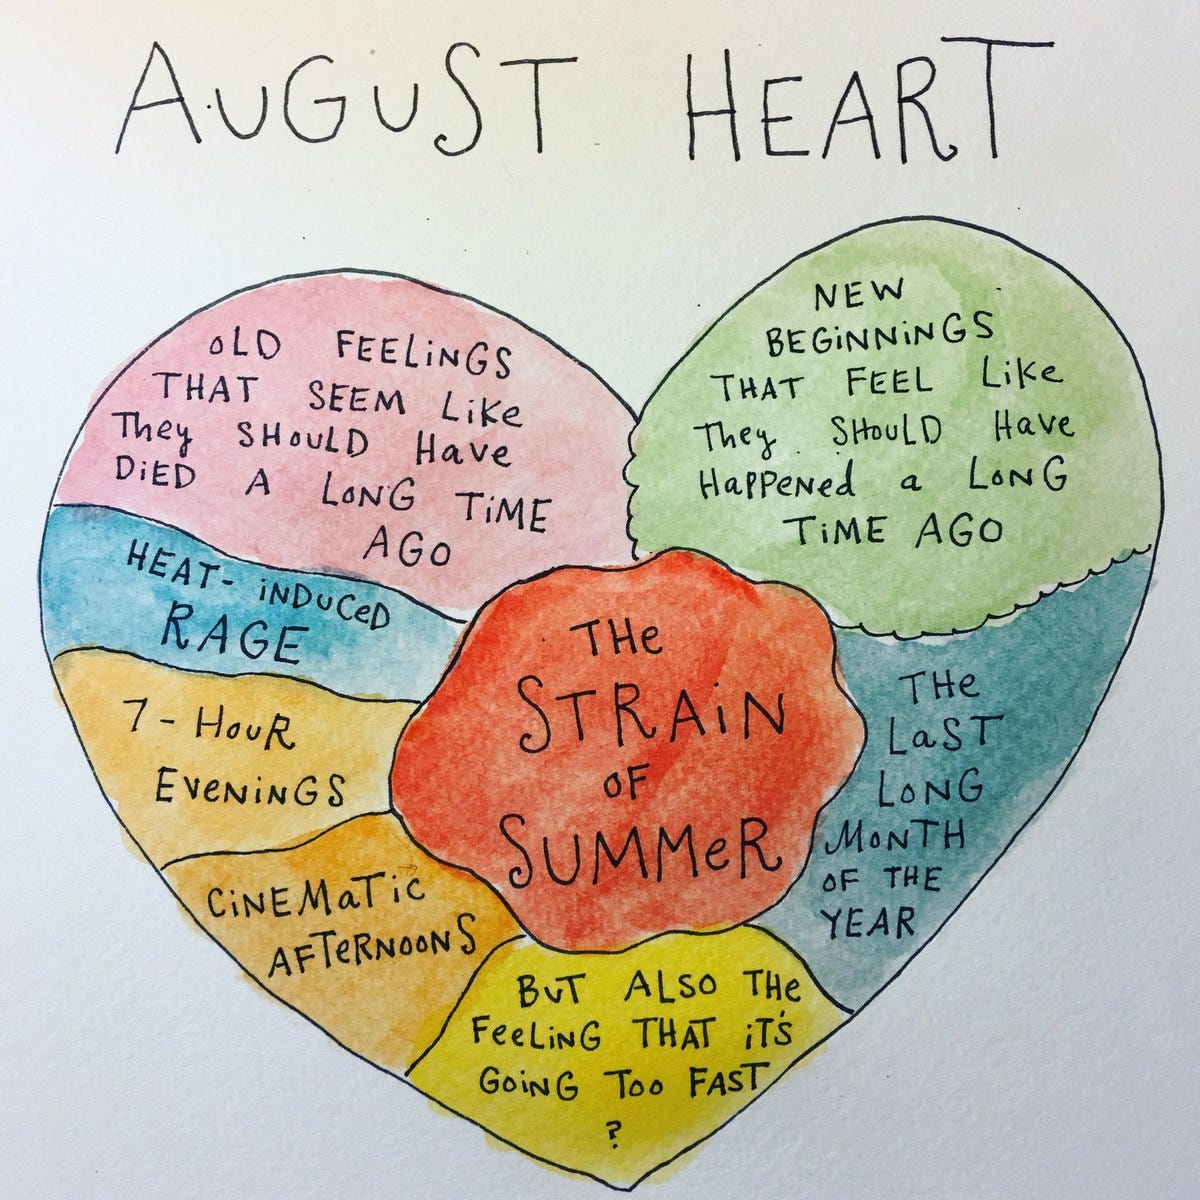 AUGUST HEART
OLD FEELINGS
THAT SEEM LiKe
THey SHOULD Have
DiED A LONG TiME
AGO
NEW
BEGiNNiNGS
THAT FEEL LiKe
THey SHOULD Have
HaPPened a LONG
TiME AGO
HEAT-iNDUCeD
RAGE
7-HOUR
EVeNiNGS
CiNEMaTiC
AFTeRNOONS
THe
STRAiN
OF
SUMMeR
THe
LaST
LONG
MONTH
OF THE
YEAR
BUT ALSO THe
FeeLiNG THAT iT'S
GOiNG TOO FAST
?